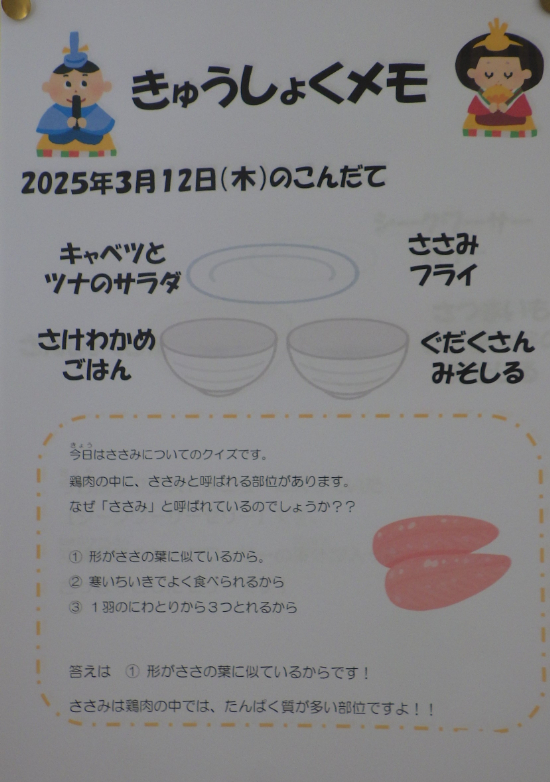 きゅうしょくメモ
2025年3月12日(木)のこんだて
キャベツと
ツナのサラダ
ささみ
フライ
さけわかめ
ごはん
ぐだくさん
みそしる
きょう
今日はささみについてのクイズです。
鶏肉の中に、ささみと呼ばれる部位があります。
なぜ「ささみ」と呼ばれているのでしょうか??
① 形がささの葉に似ているから。
② 寒いちいきでよく食べられるから
③ 1羽のにわとりから3つとれるから
答えは ① 形がささの葉に似ているからです!
ささみは鶏肉の中では、たんぱく質が多い部位ですよ!!